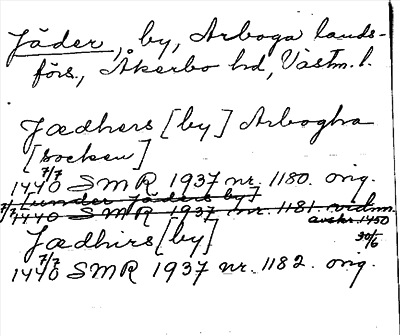 Jäder, by, Arboga lands-
förs., Åkerbo hd, Västm. l.
Jædhers [by] Arbogha
[socken]
7/7
1440 SMR 1937 nr. 1180. orig.
[under Jäders by]
7/7 1440 SMR 1937 nr. 1181. vidim.
avskr. 1450
30/6
Jædhirs [by]
7/7
1440 SMR 1937 nr. 1182. orig.